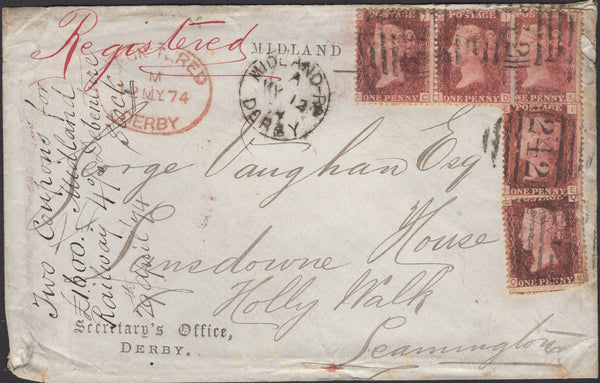 Registered
MIDLAND
REGISTERED
M
MY 74
DERBY
MIDLAND
A
MY 12
DERBY
POSTAGE
ONE PENNY
ONE PENNY
ONE PENNY
242
ONE PENNY
ONE PENNY
George Vaughan Esq
Lansdowne House
Holly Walk
Leamington
Secretary's Office,
DERBY.
Two Coupons for
£1,600. Midland
Railway 4% Debenture
Stock
29 April /74